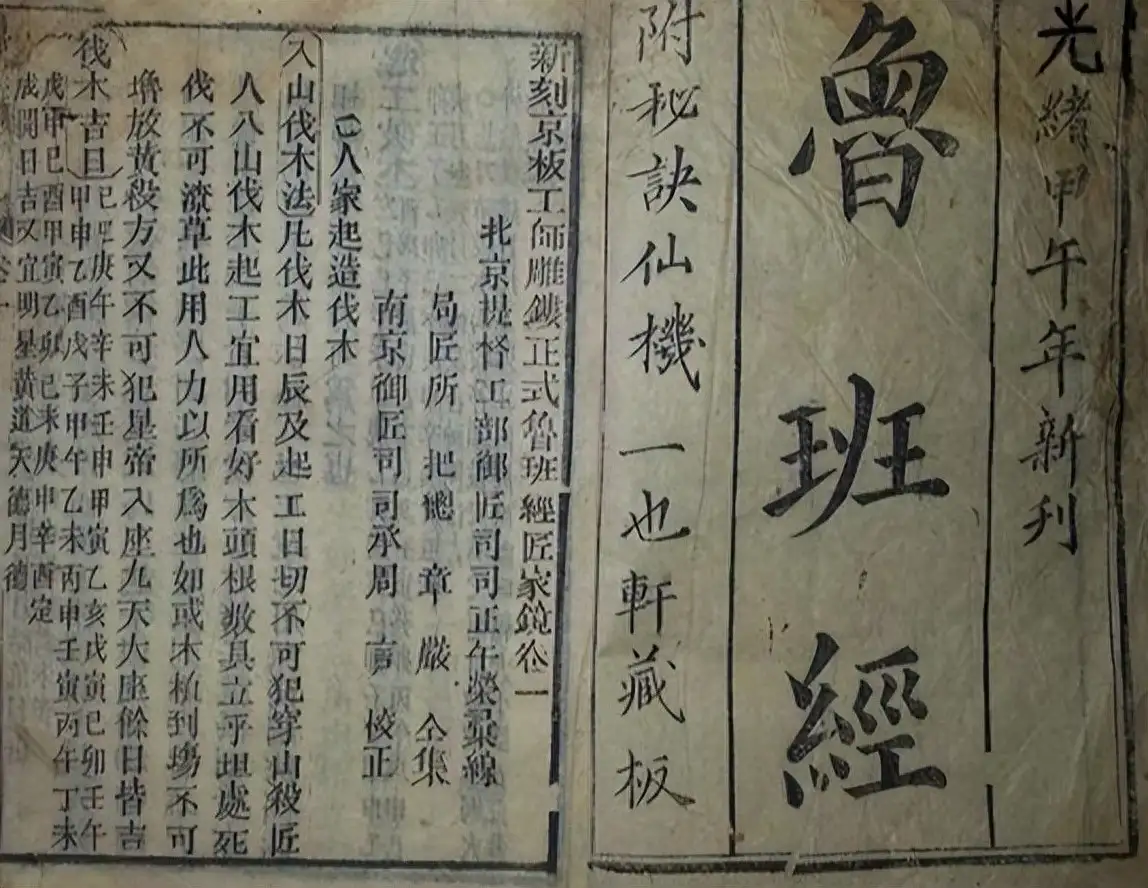 光緒甲午年新刊
魯班經
附秘訣仙機一也軒藏板
新刻京板工師雕鏤正式魯班經匠家鏡卷一
北京提督工部御匠司司正午榮彙線
局匠所把總章嚴仝集
南京御匠司司承周言校正
人家起造伐木
入山伐木法凡伐木日辰及起工日切不可犯穿山殺匠
人入山伐木起工宜用看好木頭根数具立乎坦處死
伐不可潦草此用人力以所爲也如或木植到塲不可
堆放黃殺方又不可犯星帝入座九天大座餘日皆吉
伐木吉日己巳庚午辛未壬申甲寅乙亥戊寅己卯壬午
甲申乙酉戊子甲午乙未丙申壬寅丙午丁未
戊申己酉甲寅乙卯己未庚申辛酉定
成開日吉又宜明星黃道天德月德